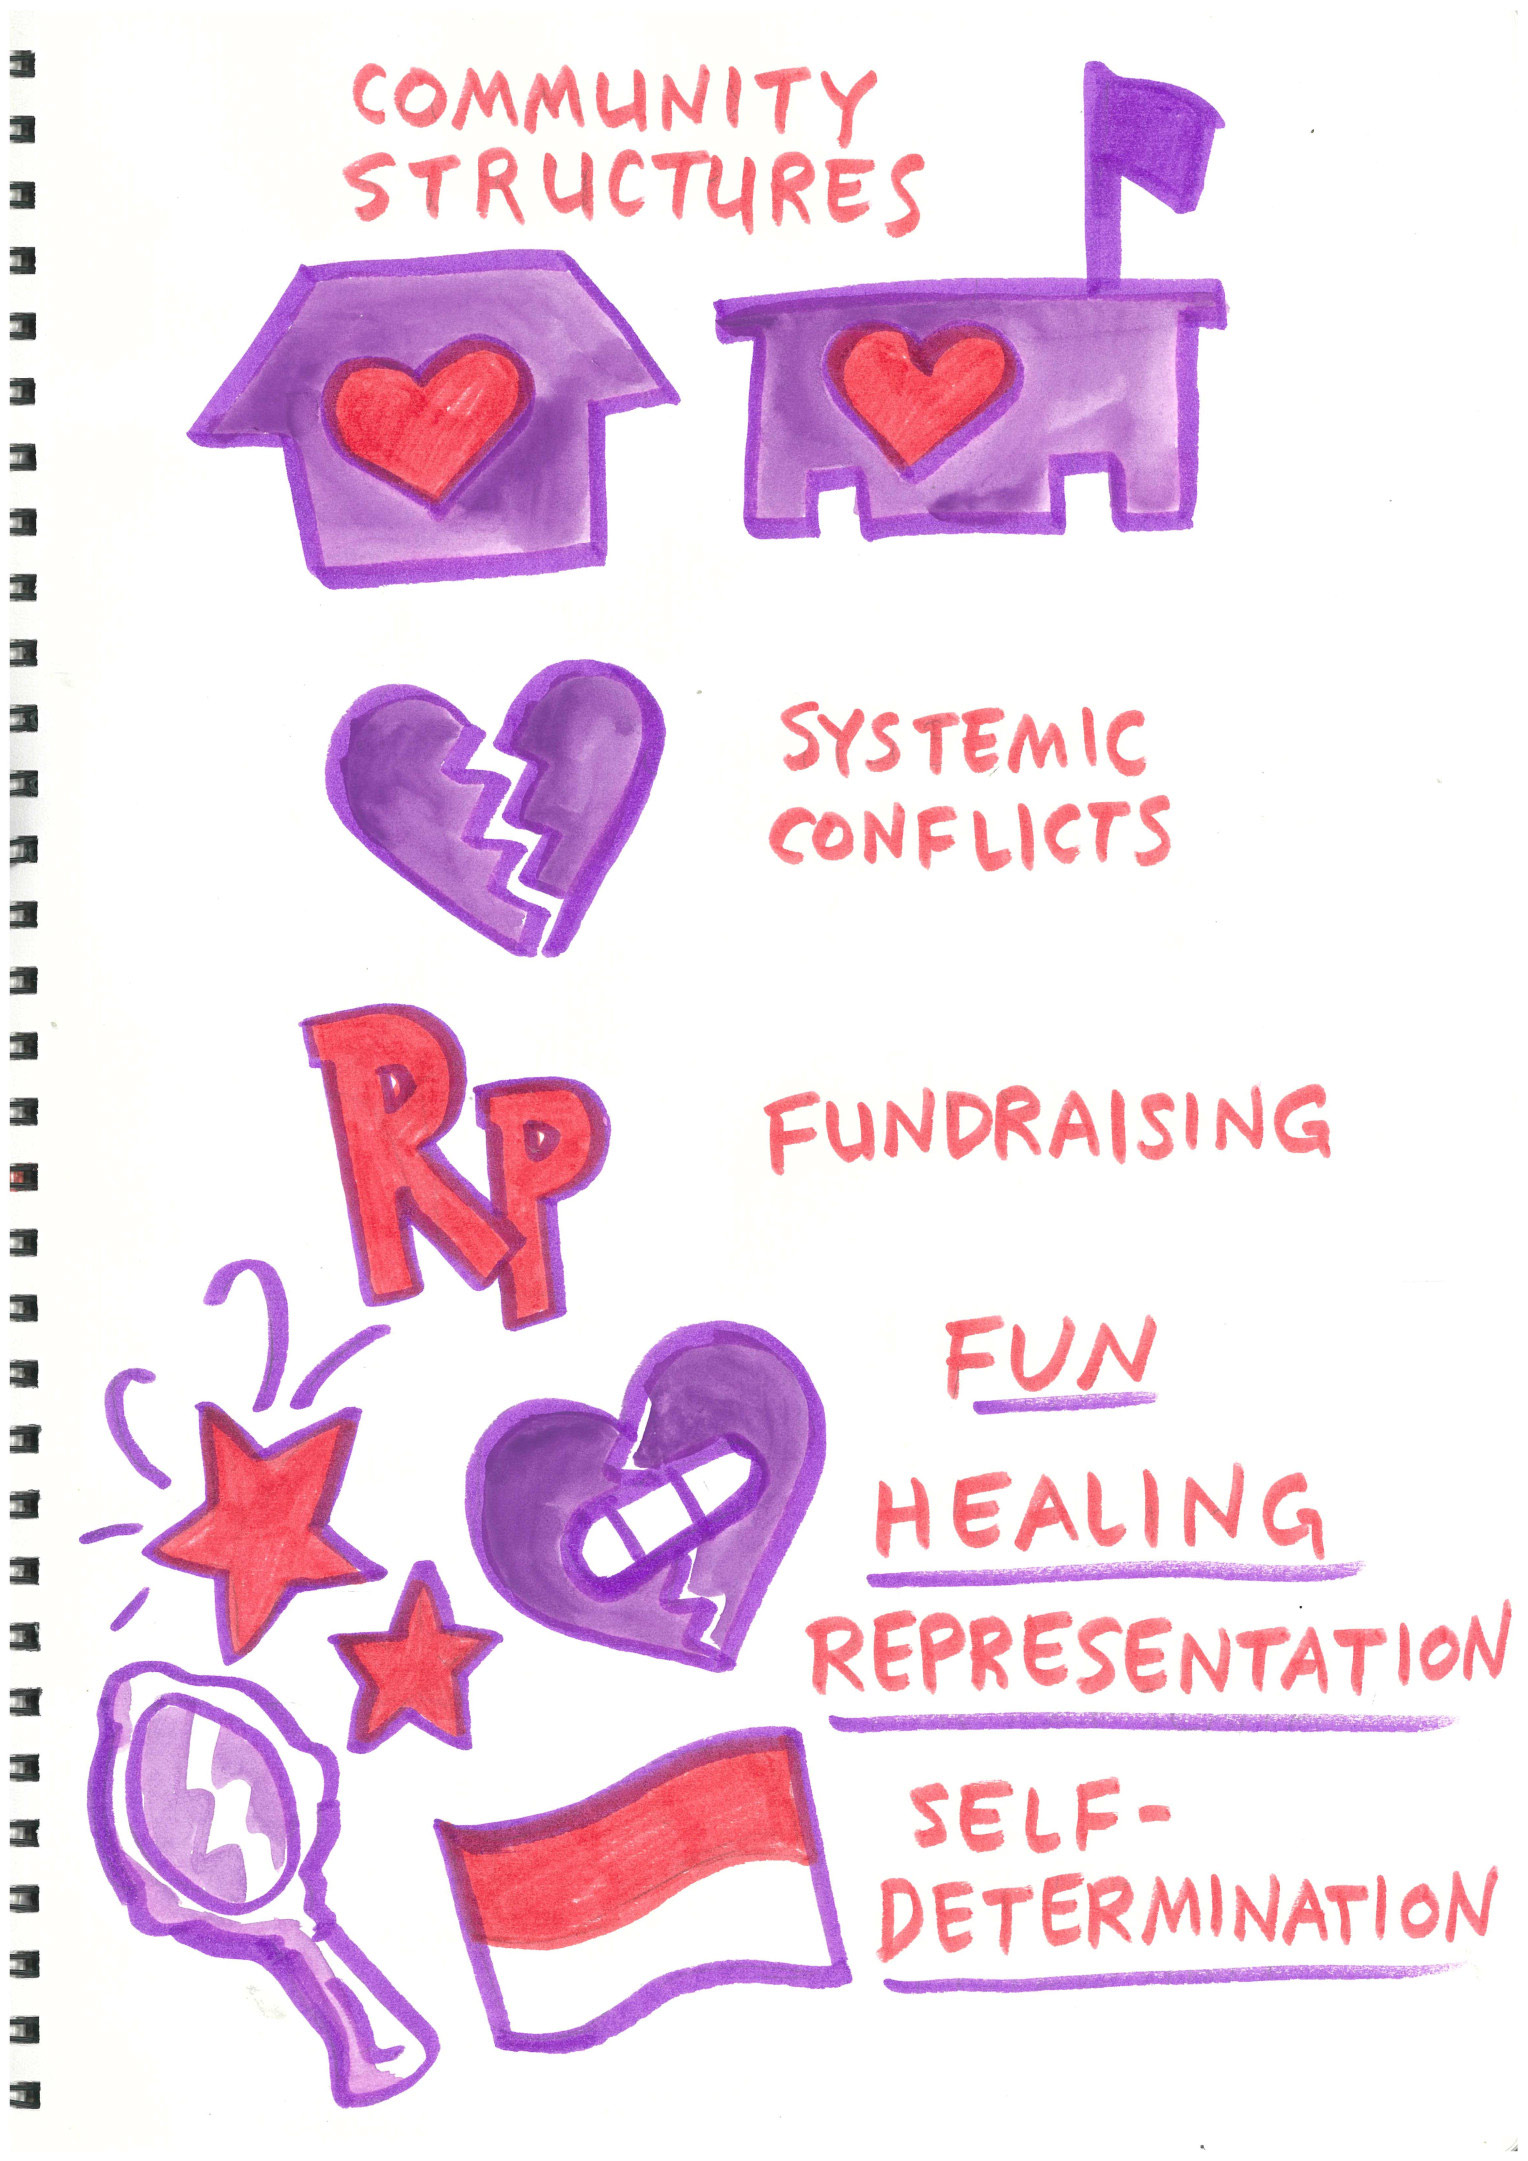 COMMUNITY
STRUCTURES
SYSTEMIC
CONFLICTS
RP
FUNDRAISING
FUN
HEALING
REPRESENTATION
SELF-
DETERMINATION